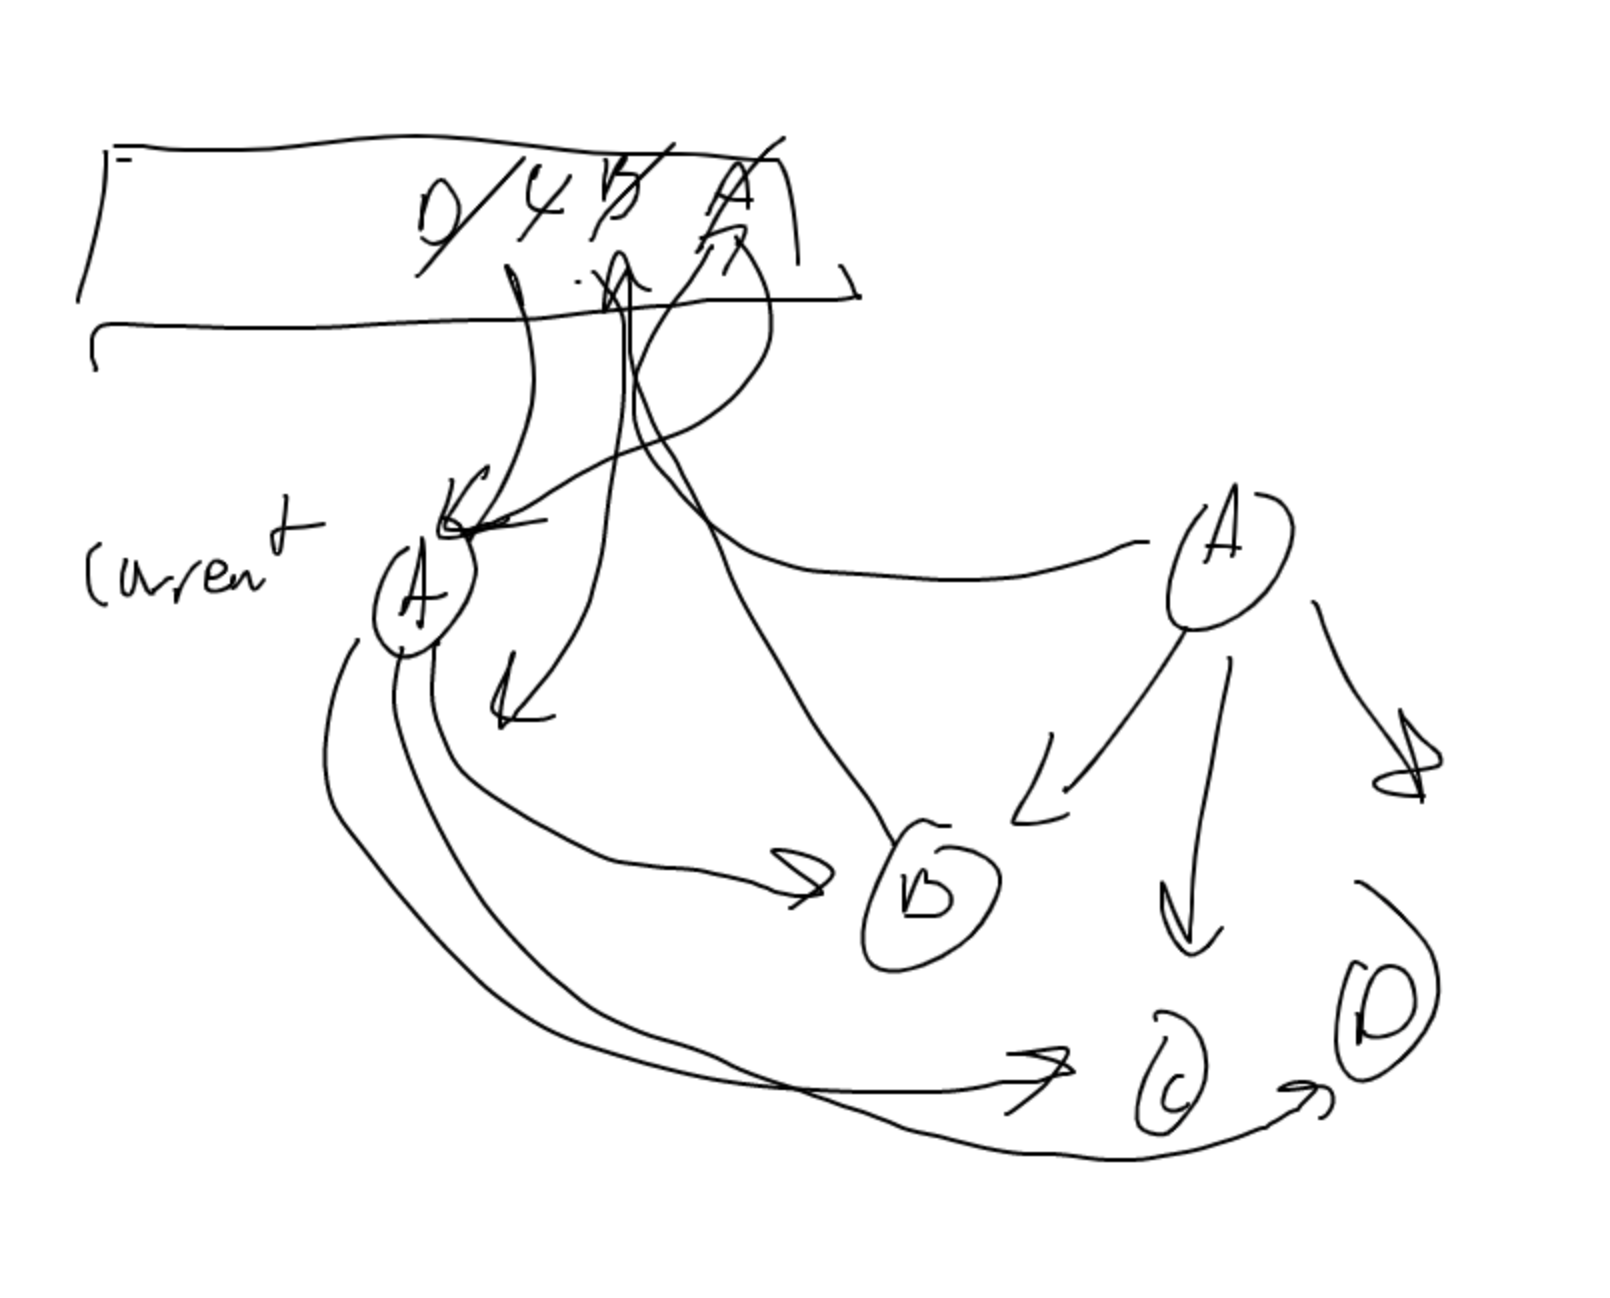 D C B A
A
Current
A
B
D
C